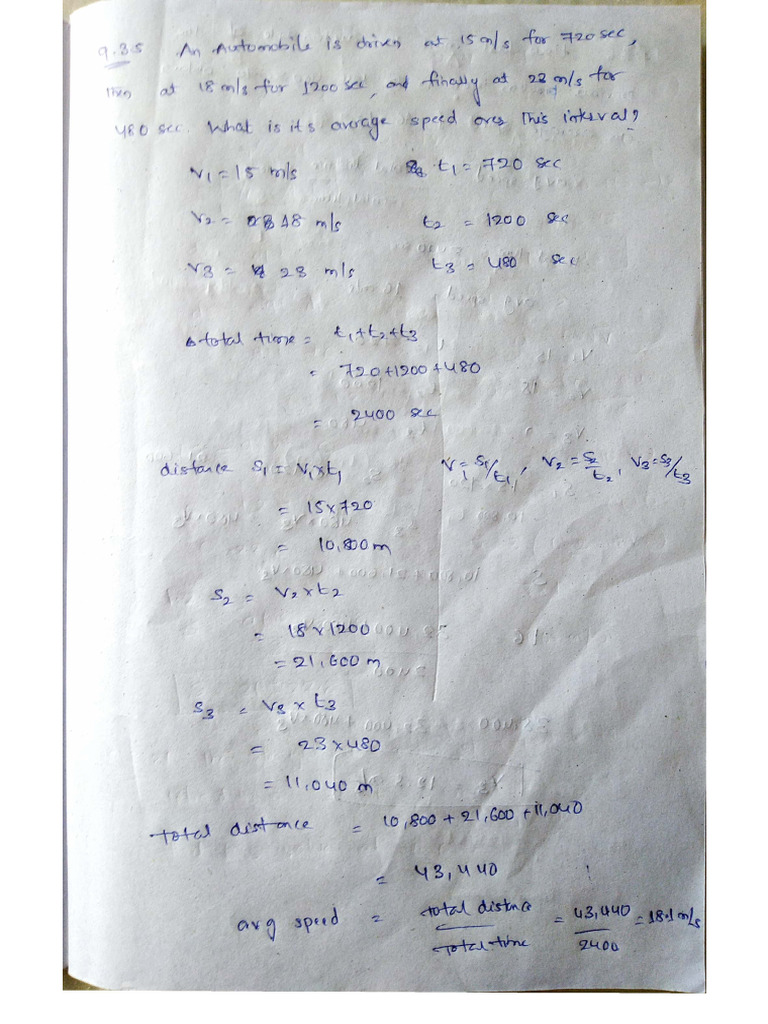 9.35 An Automobile is driven at 15 m/s for 720 sec,
then at 18 m/s for 1200 sec, and finally at 23 m/s for
480 sec. What is its average speed over this interval?
V1 = 15 m/s t1 = 720 sec
V2 = 18 m/s t2 = 1200 sec
V3 = 23 m/s t3 = 480 sec
total time = t1+t2+t3
= 720+1200+480
= 2400 sec
distance S1 = V1×t1 V1=S1/t1, V2=S2/t2, V3=S3/t3
= 15×720
= 10,800 m
S2 = V2×t2
= 18×1200
= 21,600 m
S3 = V3×t3
= 23×480
= 11,040 m
total distance = 10,800+21,600+11,040
= 43,440
avg speed = total distnce / total time = 43,440 / 2400 = 18.1 m/s